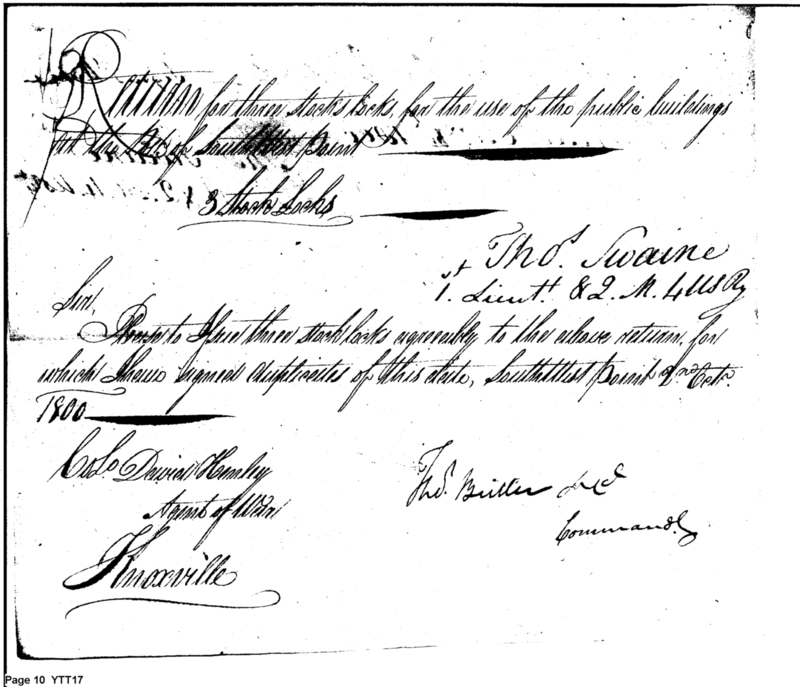 Return for three stocks locks, for the use of the public buildings
at the Post of South West Point
3 Stock Locks
Thos. Swaine
1st. Lieutt. & Q. M. 4 US Rg
Sir,
Please to Issue three stock locks agreeably to the above return, for
which I have signed duplicates of this date, South West Point 2nd Octr.
1800
Colo. David Henley
Agent of War
Knoxville
Thos. Butler
Commandg
Page 10 YTT17